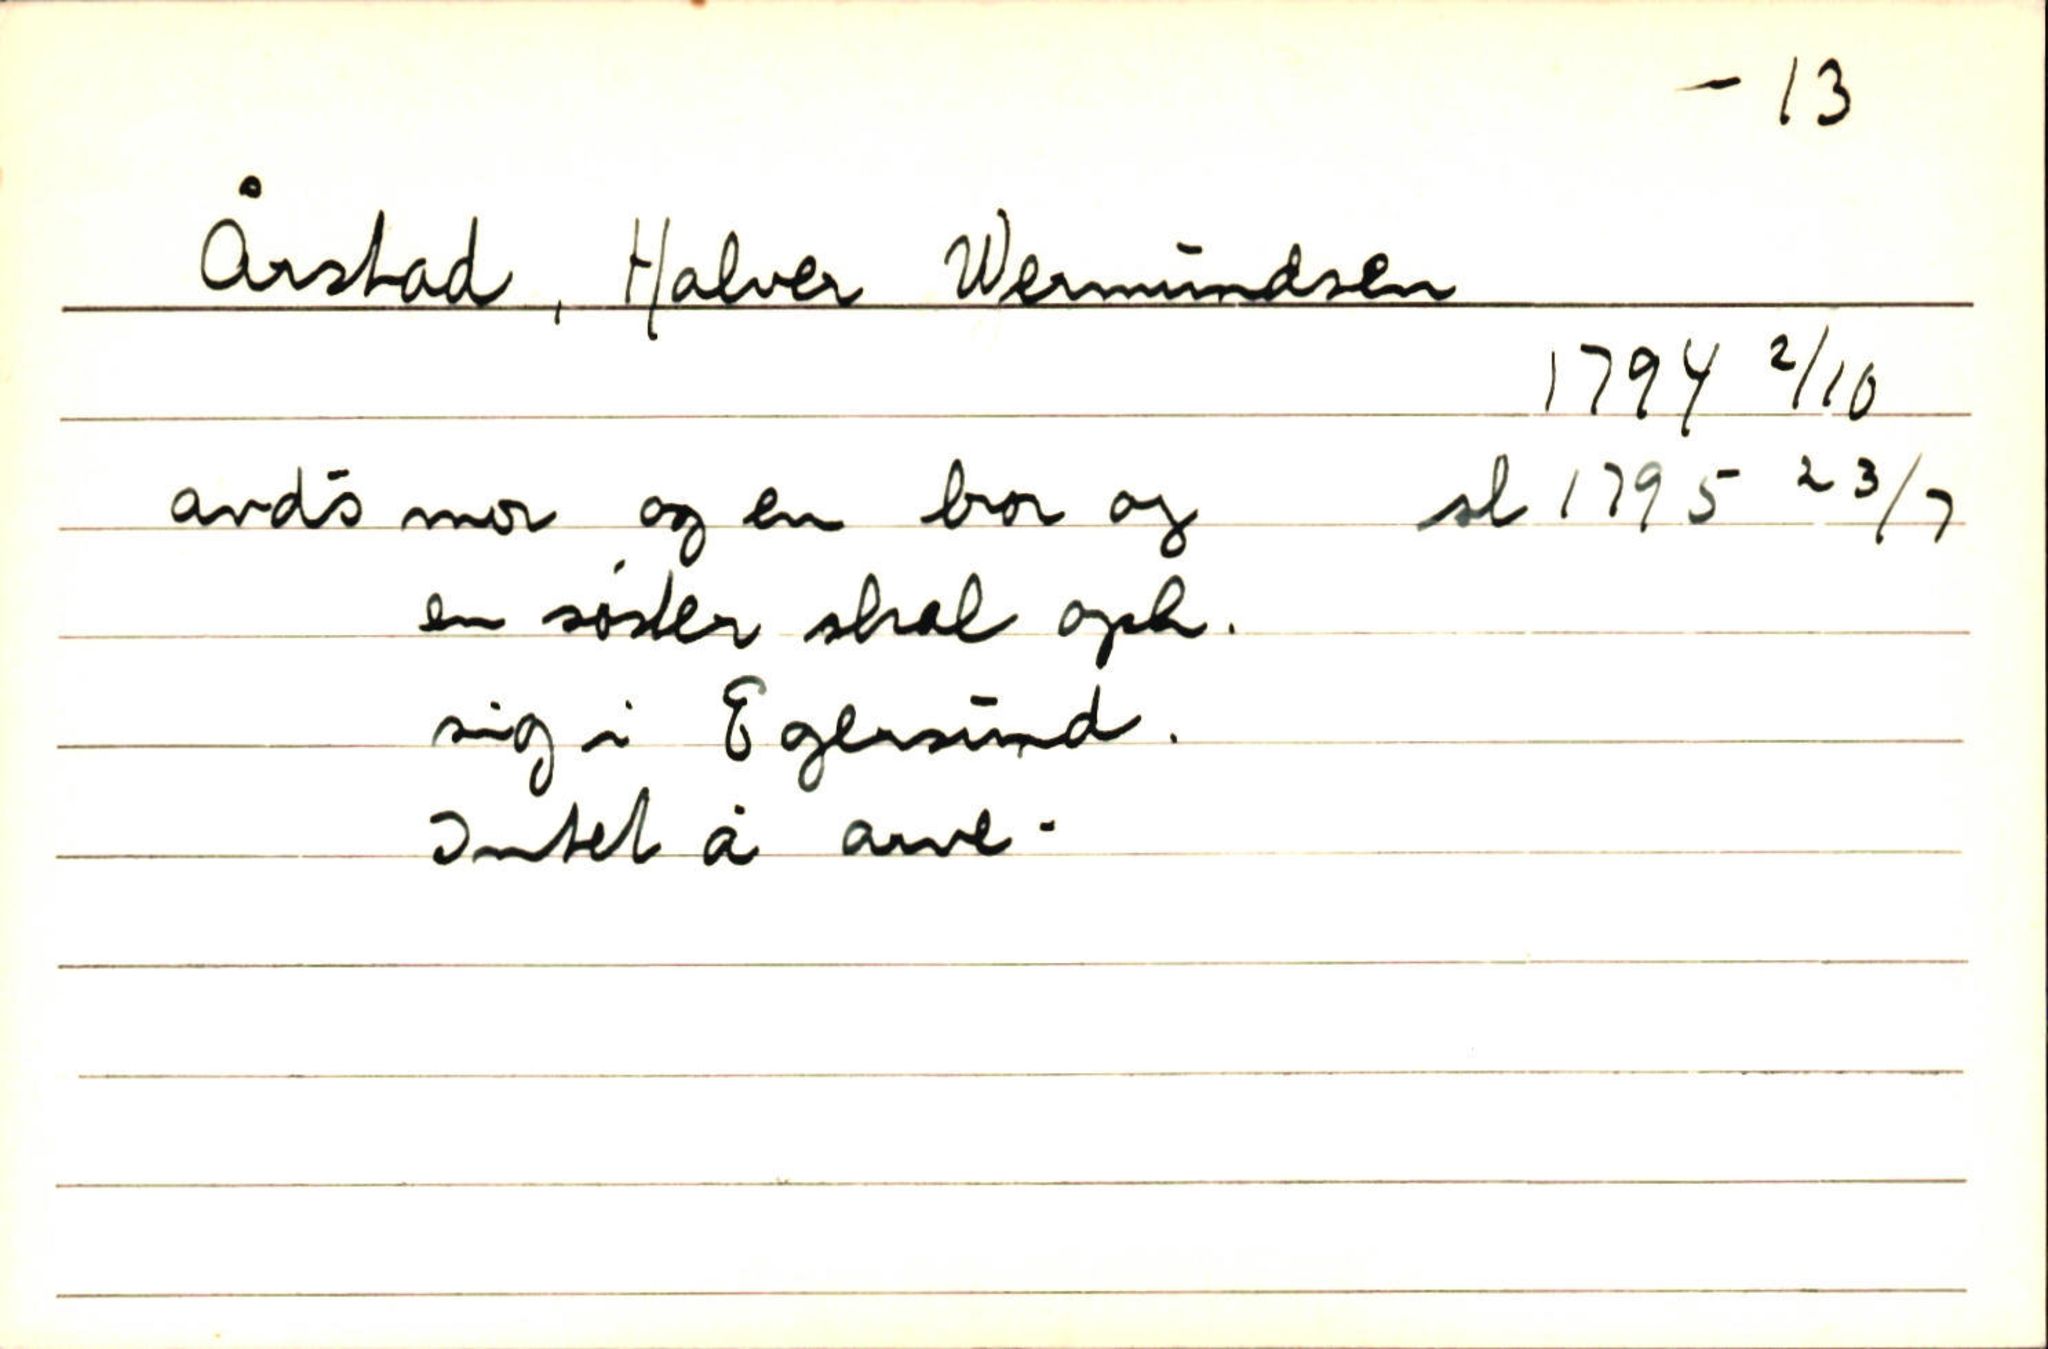 – 13
Årstad, Halver Wermundsen
1794 2/10
avds mor og en bror og sl 1795 23/7
en søster skal oph.
sig i Egersund.
Intet å arve.